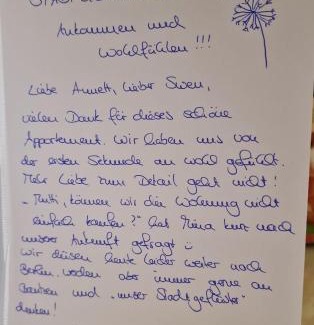 Ankommen und
Wohlfühlen!!!
Liebe Annett, lieber Swen,
vielen Dank für dieses schöne
Appartement. Wir haben uns von
der ersten Sekunde an wohl gefühlt.
Mehr Liebe zum Detail geht nicht!
"Mutti, können wir die Wohnung nicht
einfach kaufen?" hat Mina kurz nach
unserer Ankunft gefragt
Wir düsen heute leider weiter nach
Berlin, werden aber immer gerne an
Bautzen und "unser Stadtgeflüster"
denken!